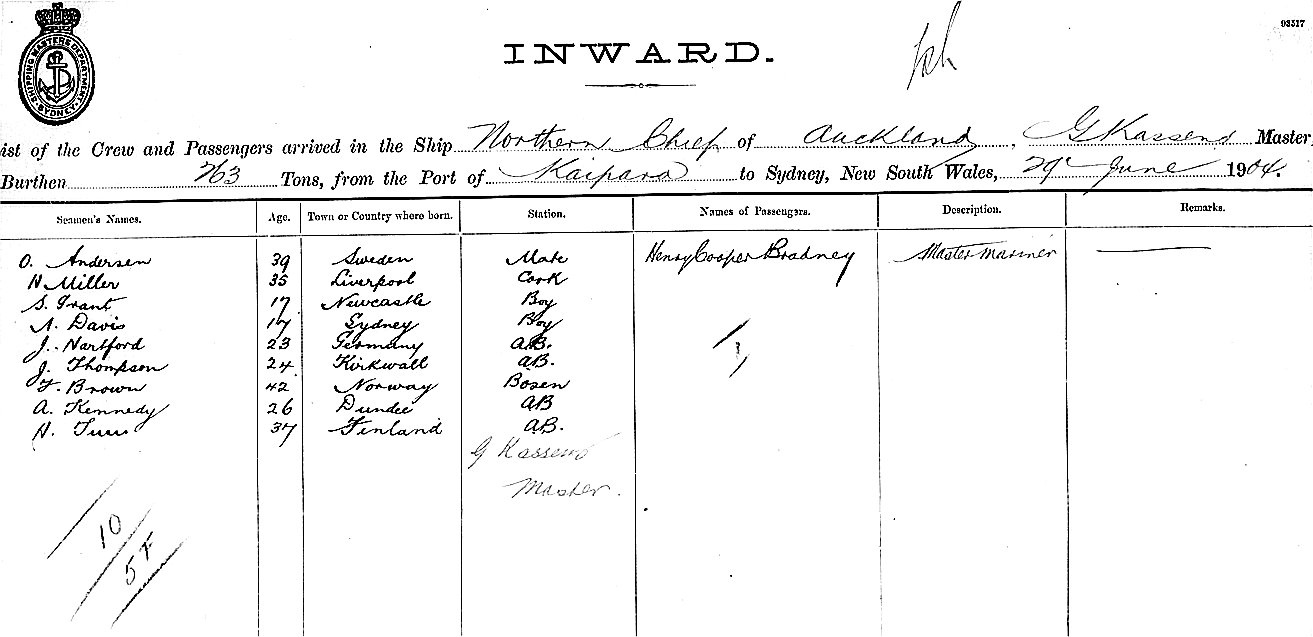 93517
SHIPPING MASTERS DEPARTMENT SYDNEY
INWARD.
ist of the Crew and Passengers arrived in the Ship Northern Chief of Auckland, G Kassend Master
Burthen 263 Tons, from the Port of Kaipara to Sydney, New South Wales, 29 June 1904.
Seamen's Names. Age. Town or Country where born. Station. Names of Passengers. Description. Remarks.
O. Andersen 39 Sweden Mate Henry Cooper Bradney Master Mariner
H Miller 35 Liverpool Cook
S. Grant 17 Newcastle Boy
A. Davis 17 Sydney Boy
J. Hartford 23 Germany A.B.
J. Thompson 24 Kirkwall A.B.
F. Brown 42 Norway Bosen
A. Kennedy 26 Dundee AB
H. 37 Finland A.B.
G Kassend
Master.
1
10
5 F